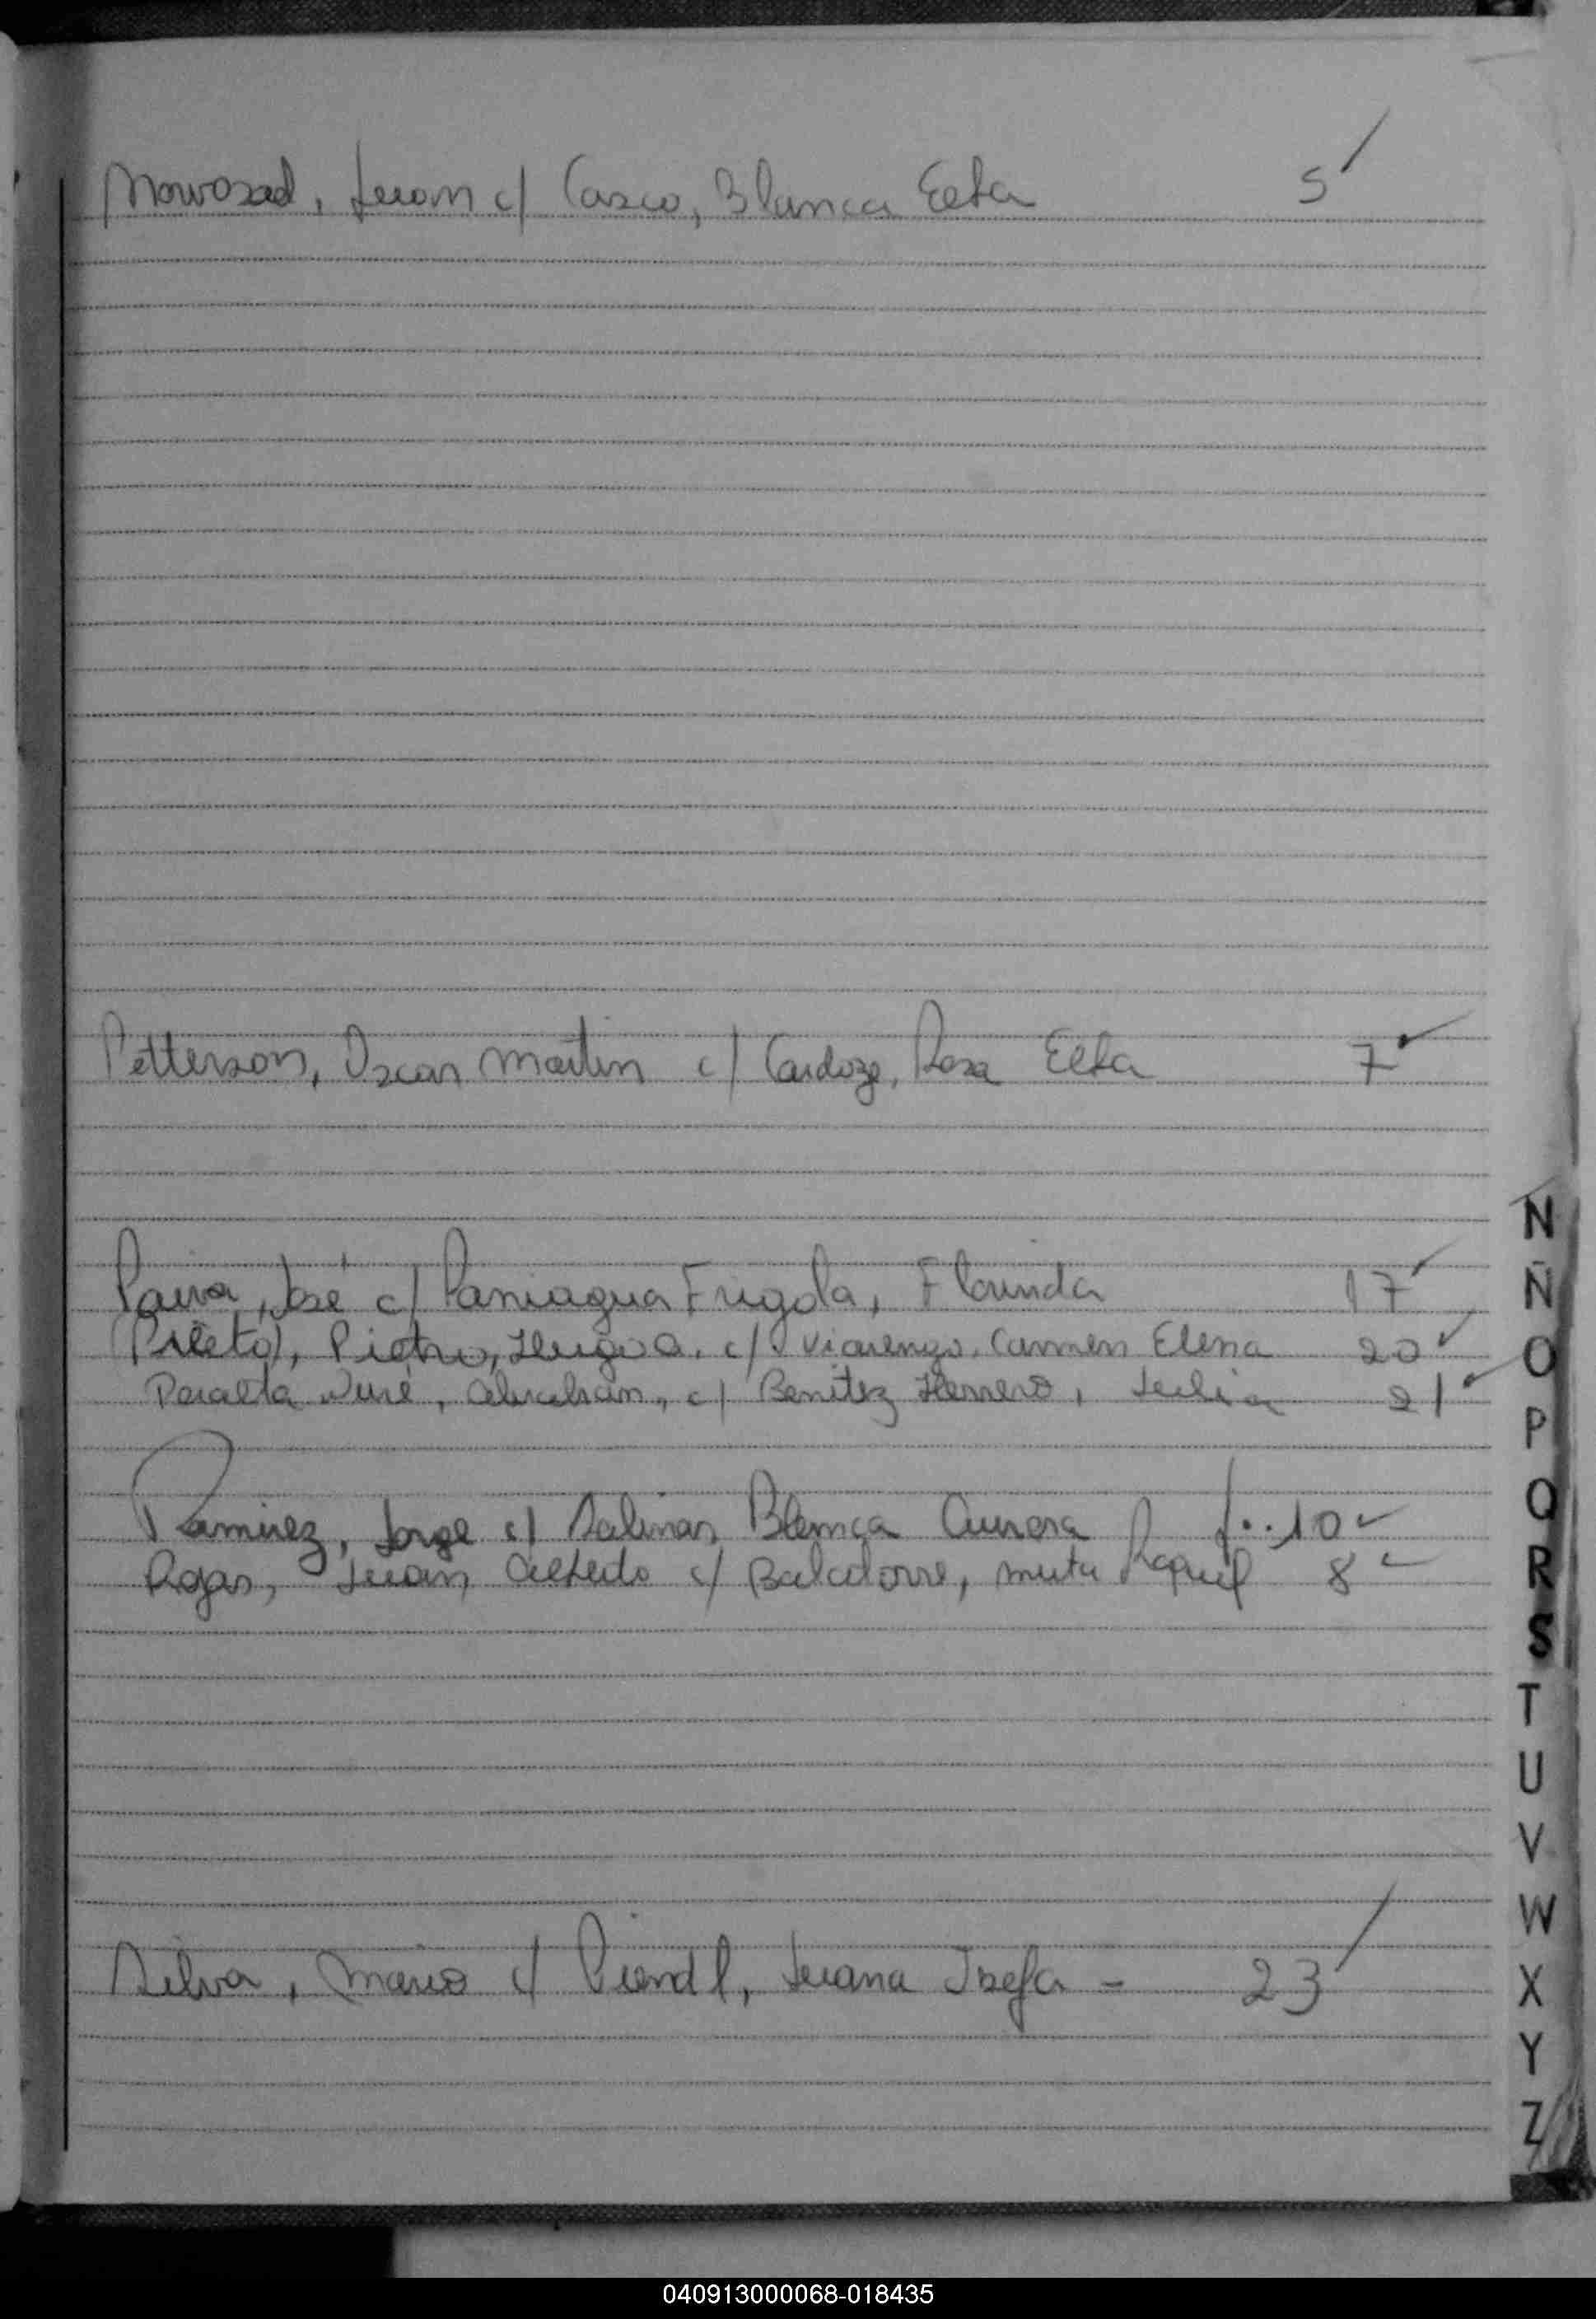 Nowosad, Juan c/ Casco, Blanca Elta 5
Petterson, Oscar Martin c/ Cardozo, Rosa Elta 7
Paiva, José c/ Paniagua Frigola, Florinda 17
(Prieto), Pietro, Hugo A. c/ Viarengo, Carmen Elena 20
Peralta Duré, Abrahan, c/ Benitez Herrero, Julia 21
Ramirez, Jorge c/ Salinas Blanca Aurora f..10
Rojas, Juan Alfredo c/ Baladorre, Raquel 8
Silva, Mario c/ Piendl, Juana Josefa - 23
N
Ñ
O
P
Q
R
S
T
U
V
W
X
Y
Z
040913000068-018435